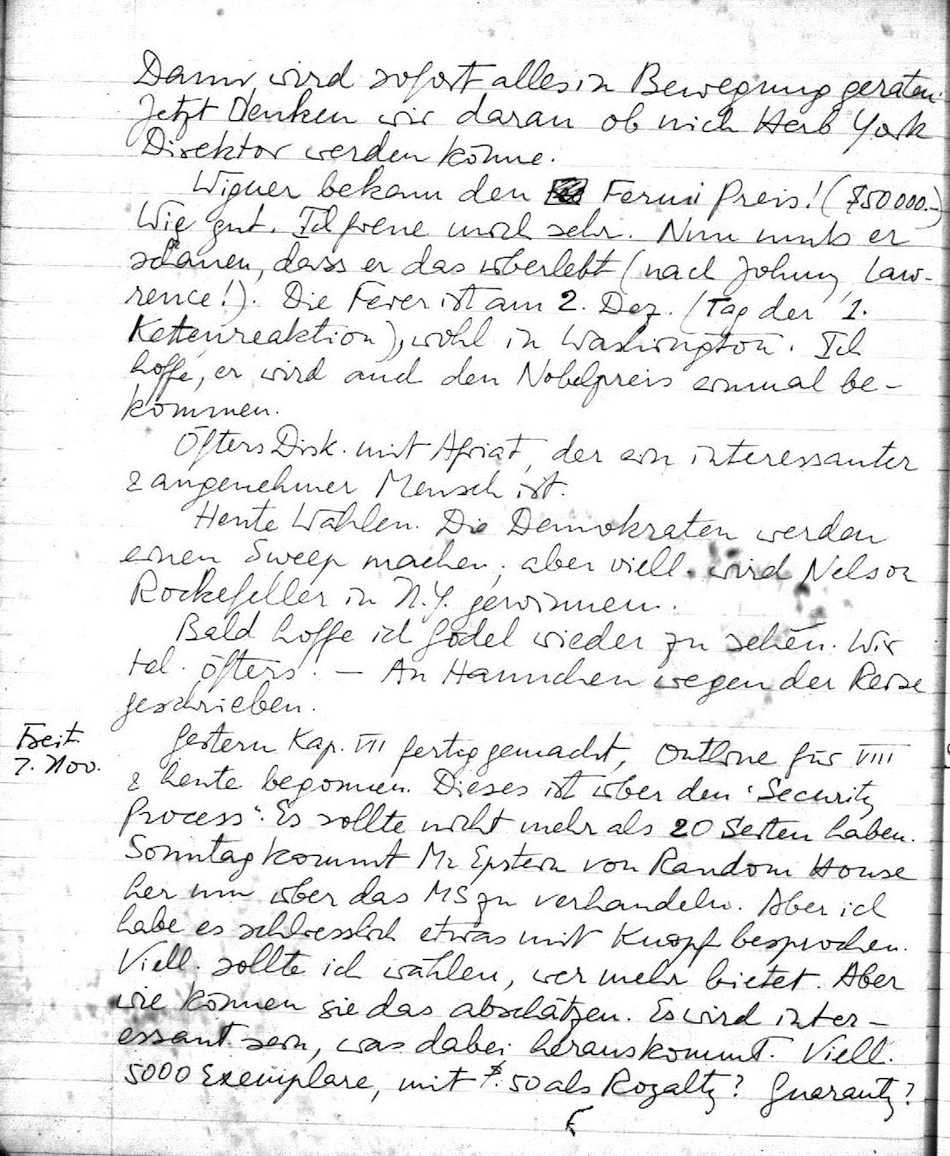 Dann wird sofort alles in Bewegung geraten.
Jetzt Denken wir daran ob nich Herb York
Direktor werden könne.
Wigner bekam den Fermi Preis! ($50000.-)
Wie gut. Ich freue mich sehr. Nun muss er
schauen, dass er das überlebt (nach Johnny, Law-
rence!). Die Feier ist am 2. Dez. (Tag der 1.
Kettenreaktion), wohl in Washington. Ich
hoffe, er wird auch den Nobelpreis einmal be-
kommen.
Öfters Disk. mit Afriat, der ein interessanter
& angenehmer Mensch ist.
Heute Wahlen. Die Demokraten werden
einen Sweep machen, aber viell. wird Nelson
Rockefeller in N.Y. gewinnen.
Bald hoffe ich Gödel wieder zu sehen. Wir
tel. öfters. – An Hannchen wegen der Reise
geschrieben.
Freit.
7. Nov.
Gestern Kap. VII fertig gemacht, Outline für VIII
& heute begonnen. Dieses ist über den "Security
Process". Es sollte nicht mehr als 20 Seiten haben.
Sonntag kommt Mr Epstein von Random House
her um über das MS zu verhandeln. Aber ich
habe es schliesslich etwas mit Knopf besprochen.
Viell. sollte ich wählen, wer mehr bietet. Aber
wie können sie das abschätzen. Es wird inter-
essant sein, was dabei herauskommt. Viell.
5000 Exemplare, mit $.50 als Royalty? Guaranty?